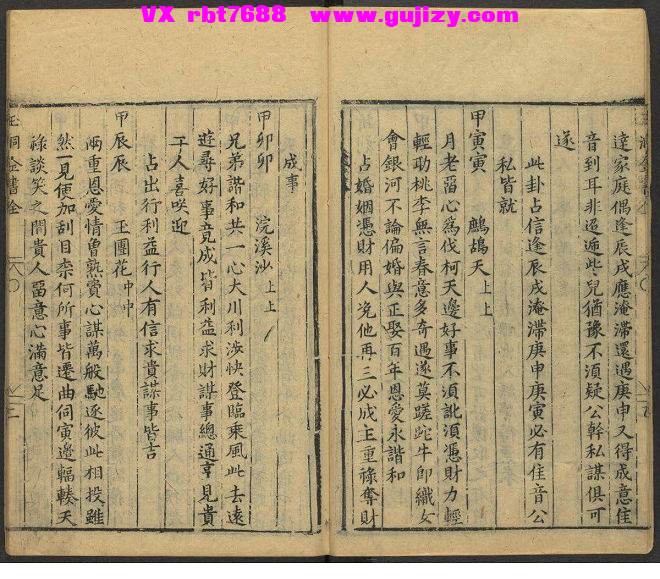 VX rbt7688 www.gujizy.com
達家庭偶逢辰戌應淹滯還遇庚申又得成意佳
音到耳非迢遞些兒猶豫不須疑公幹私謀俱可
遂
此卦占信逢辰戌淹滯庚申庚寅必有佳音公
私皆就
甲寅寅 鷓鴣天上上
月老留心爲伐柯天邊好事不須訛須憑財力輕
輕助桃李無言春意多奇遇遂莫蹉跎牛郎織女
會銀河不論偏婚與正娶百年恩愛永諧和
占婚姻憑財用人免他再三必成主重祿奪財
成事
甲卯卯 浣溪沙上上
兄弟諧和共一心大川利涉快登臨乘風此去遠
遊尋好事竟成皆利益求財謀事總通享見貴
于人喜咲迎
占出行利益行人有信求貴謀事皆吉
甲辰辰 玉團花中中
兩重恩愛情魯熟賞心謀萬般馳逐彼此相投雖
然一見便加刮目柰何所事皆遷曲伺寅邊輻輳天
祿談笑之間貴人留意心滿意足
玉洞金書全